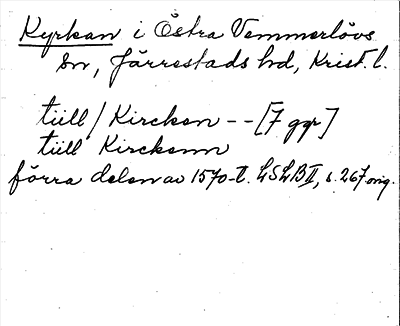 Kyrkan i Östra Vemmerlövs
sn, Järrestads hd, Krist. l.
tiill / Kircken -- [7 ggr]
tiill Kirckenn
förra delen av 1570-t. LSLB II, s. 267 orig.